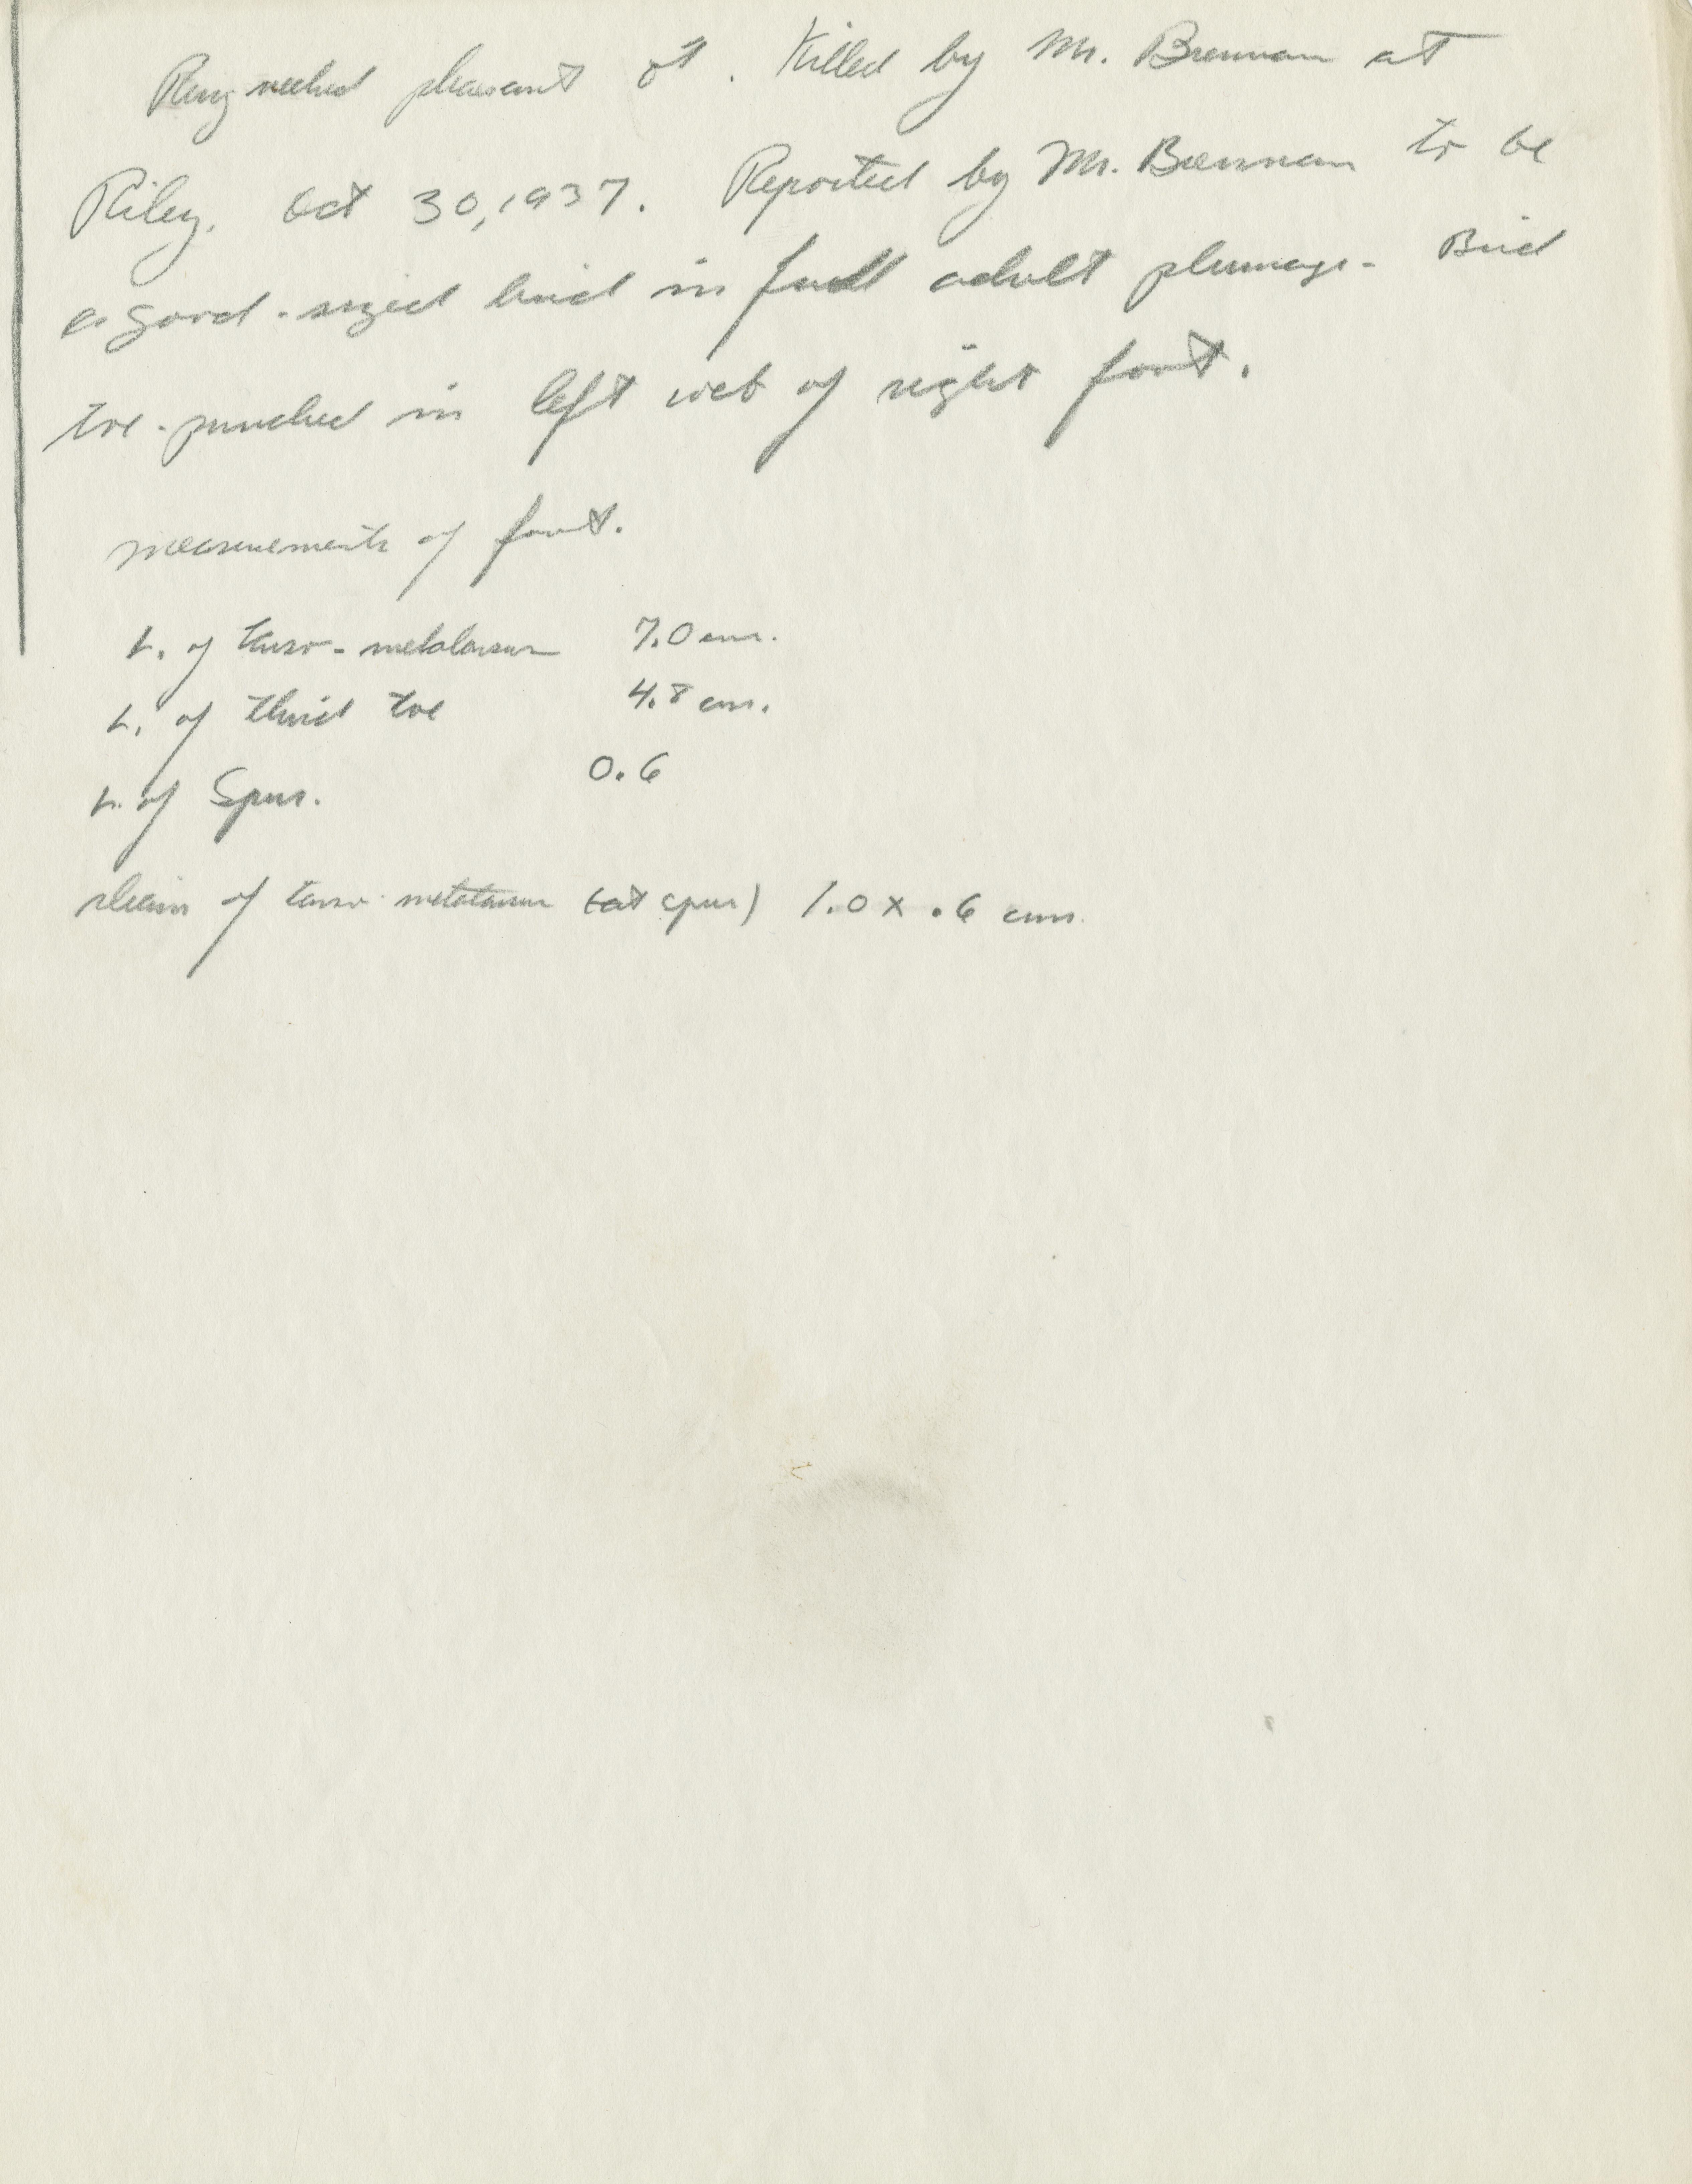 Ring necked pheasant ♂. Killed by Mr. Brennan at
Riley, Oct 30, 1937. Reported by Mr. Brennan to be
a good-sized bird in full adult plumage. Bird
toe-punched in left web of right foot.
measurements of foot.
L. of tarso-metatarsus 7.0 cm.
L. of third toe 4.8 cm.
L. of Spur. 0.6
diam of tarso-metatarsus (at spur) 1.0 x .6 cm.